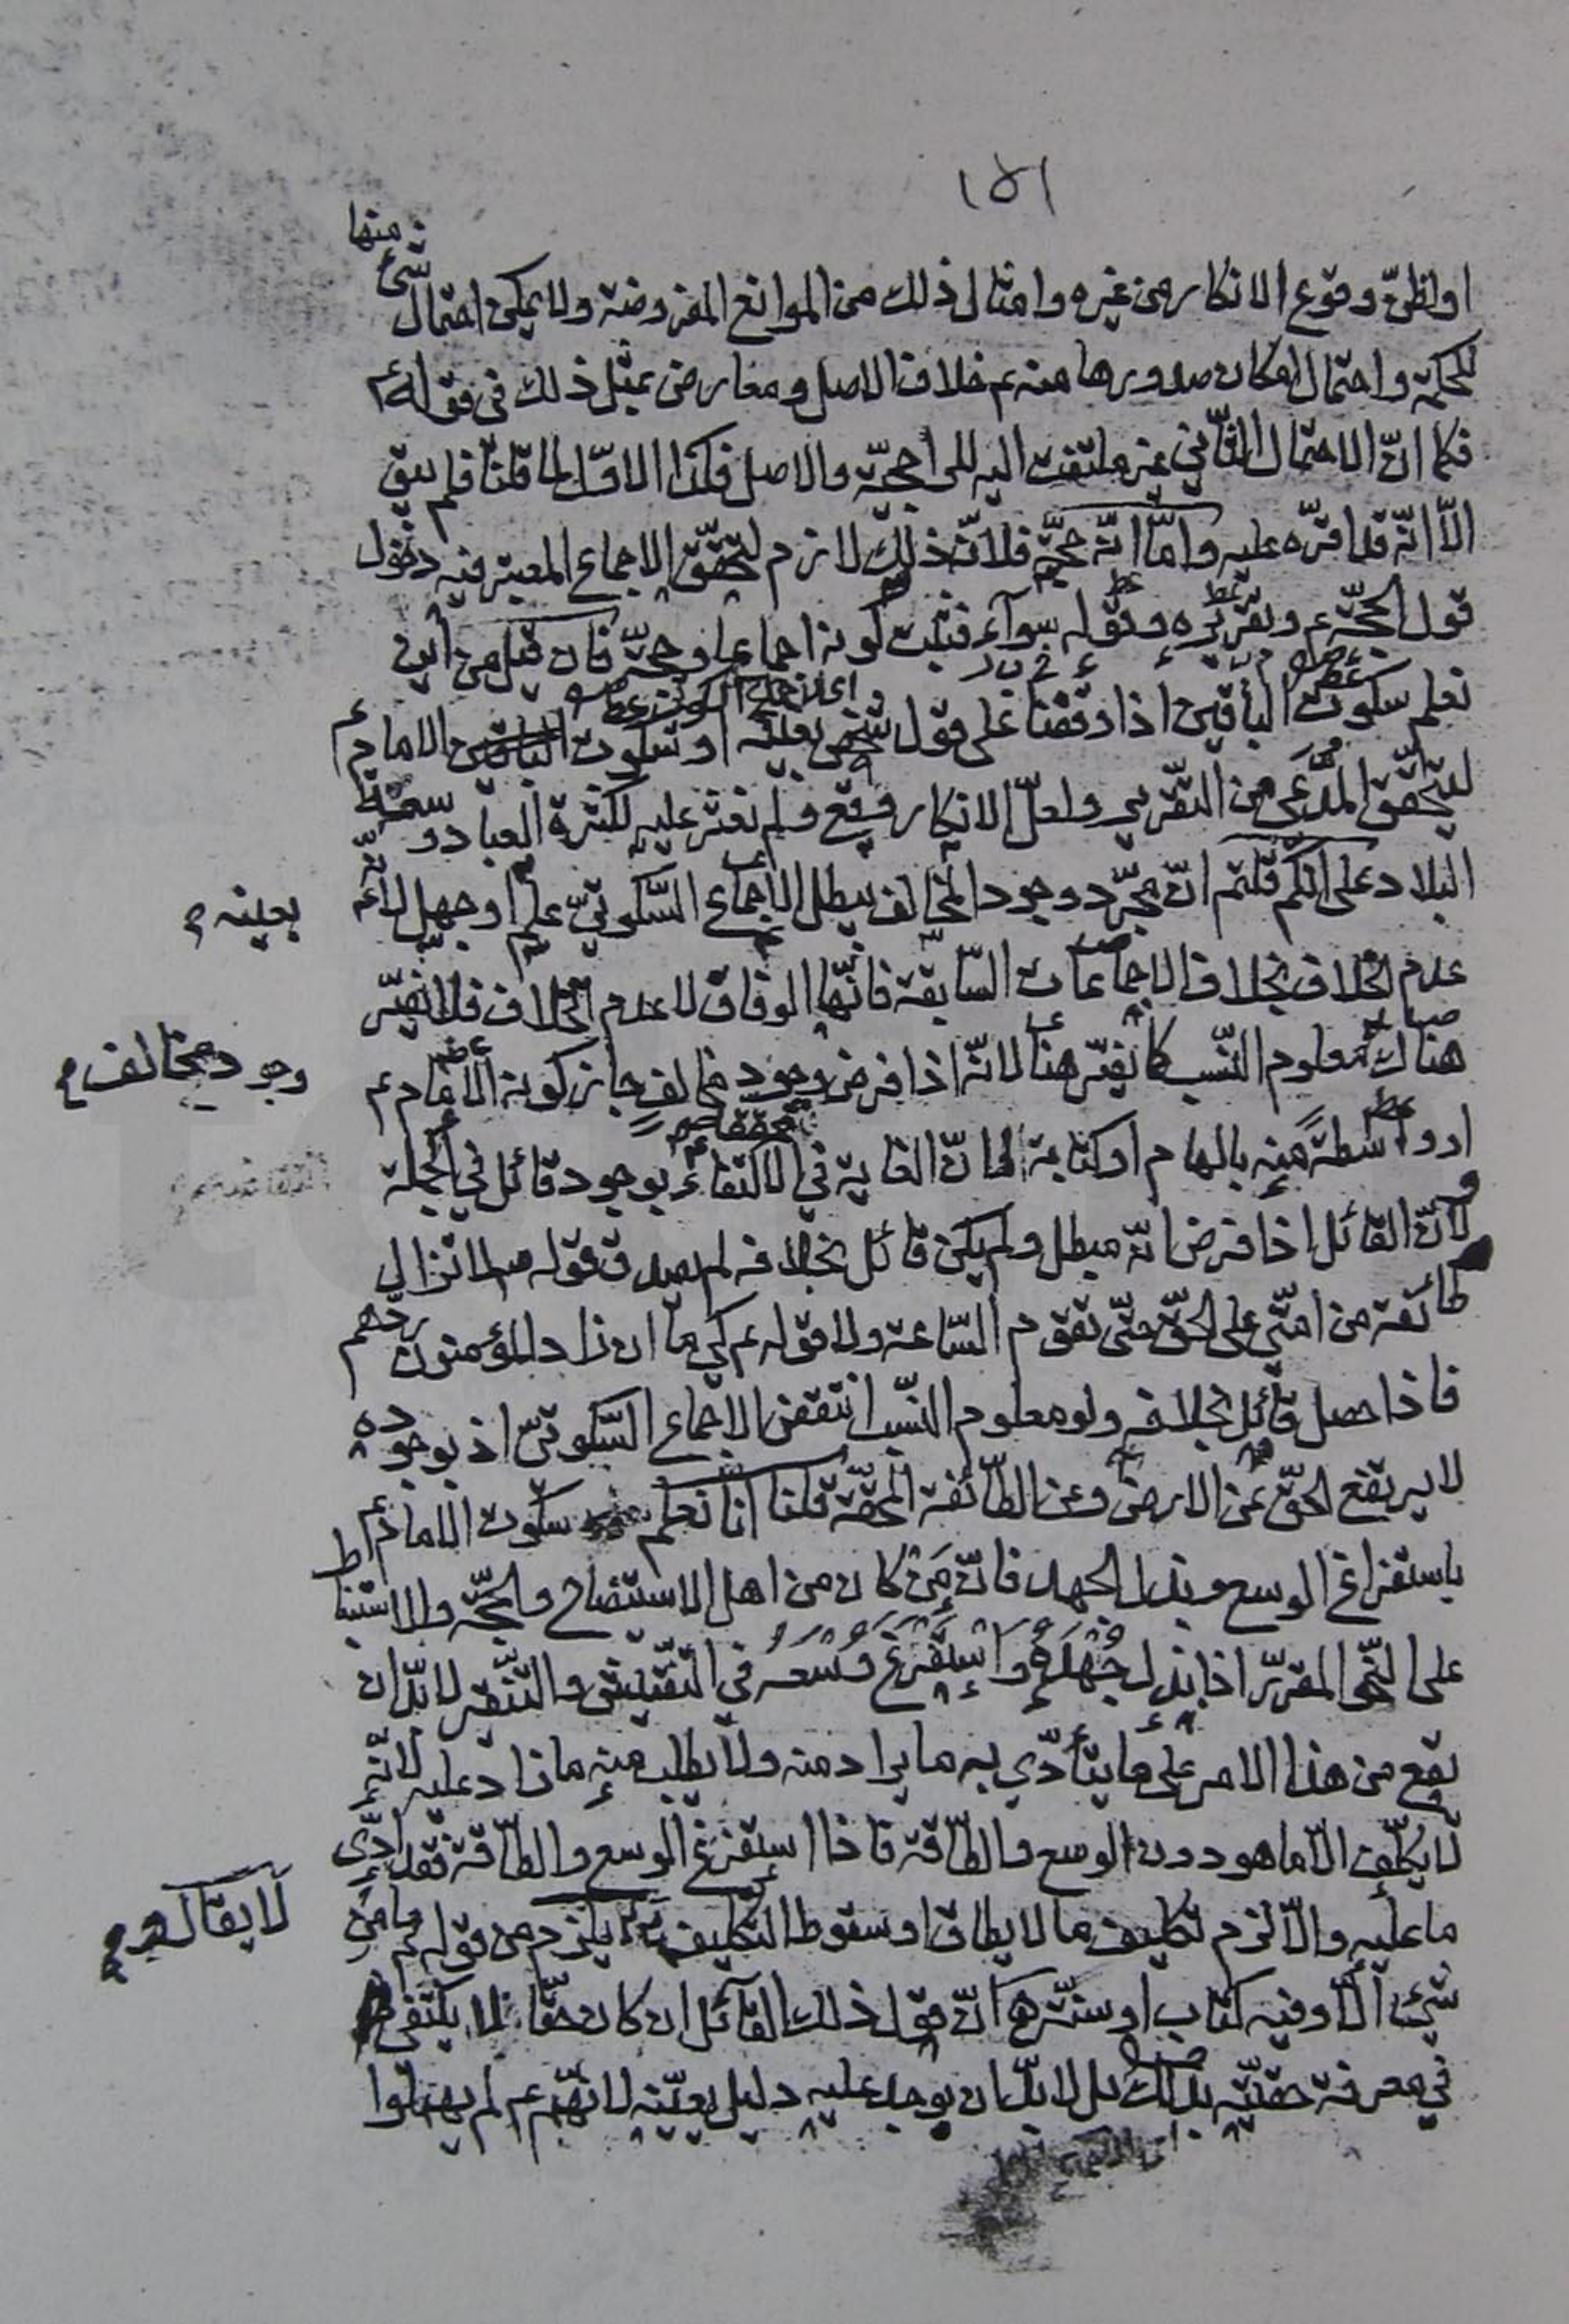 ١٥١
او لظنّ وقوع الانكار من غيره وامثال ذلك من الموانع المفروضة ولا يمكن احتمال شئ منها
للحكمة واحتمال امكان صدورها منه ع خلاف الاصل ومعارض بمثل ذلك في قوله ع
فكما انّ الاحتمال الثّاني غير ملتفت اليه للراجحيّة والاصل فكذا الاوّل لما قلنا فلم يبق
الّا انّه قد اقرّه عليه وامّا انّه حجّة فلانّ ذلك لازم لتحقّق الاجماع المعتبر فيه دخول
قول الحجّة ع وتقريره وقوله سواء فثبت كونه اجماعا وحجّة فان قيل من اين
نعلم سكوت الباقين اذا وقفنا على قول شخص بعينه او سكوت الامام ع
ليتحقّق المدّعى من التّقرير ولعلّ الانكار وقع ولم نعثر عليه لكثرة العباد وسعة
البلاد على انّكم قلتم انّ مجرّد وجود المخالف يبطل الاجماع السّكوتيّ علم او جهل لانّه
بعينه
عدم الخلاف بخلاف الاجماعات السّابقة فانّها الوفاق لا عدم الخلاف فلا يضرّ
هناك معلوم النّسب كما يضرّ هنا لانّه اذا فرض وجود مخالف جاز كونه الامام ع
وجود مخالف
او واسطة منه بالهام او كتابة لانّ الغاية في الاكتفاء بوجود قائل في الجملة
ولانّ القائل اذا فرض انّه مبطل ولم يكن قائل بخلافه لم يصدق قوله ص لا تزال
طائفة من امّتي على الحقّ حتّى تقوم السّاعة ولا قوله ع كي ما ان زاد المؤمنون ردّهم
فاذا حصل قائل بخلافه ولو معلوم النّسب انتقض الاجماع السّكوتيّ اذ بوجوده
لا يرتفع الحقّ عن الارض وعن الطّائفة المحقّة قلنا انّا نعلم سكوت الامام ع
باستفراغ الوسع وبذل الجهد فانّ من كان من اهل الاستيضاح والحجّة والاستنباط
على النّحو المقرّر اذا بذل جُهْدَهُ واستفرغ وُسْعَهُ في التّفتيش والتّتبّع لا بدّ ان
يقع من هذا الامر على ما يتأدّى به ما يراد منه ولا يطلب منه ما زاد عليه لانّه
لا يكلّف الّا ما هو دون الوسع والطّاقة فاذا استفرغ الوسع والطّاقة فقد ادّى
ما عليه والّا لزم تكليف ما لا يطاق او سقوط التكليف يلزم من قولهم ما من
لا يقال
شئ الّا وفيه كتاب او سنّة انّ قول ذلك القائل ان كان حقّا لا يكتفى
في معرفة حقّيّته بذلك بل لا بدّ ان يوجد عليه دليل بعينه لانّهم ع لم يهملوا